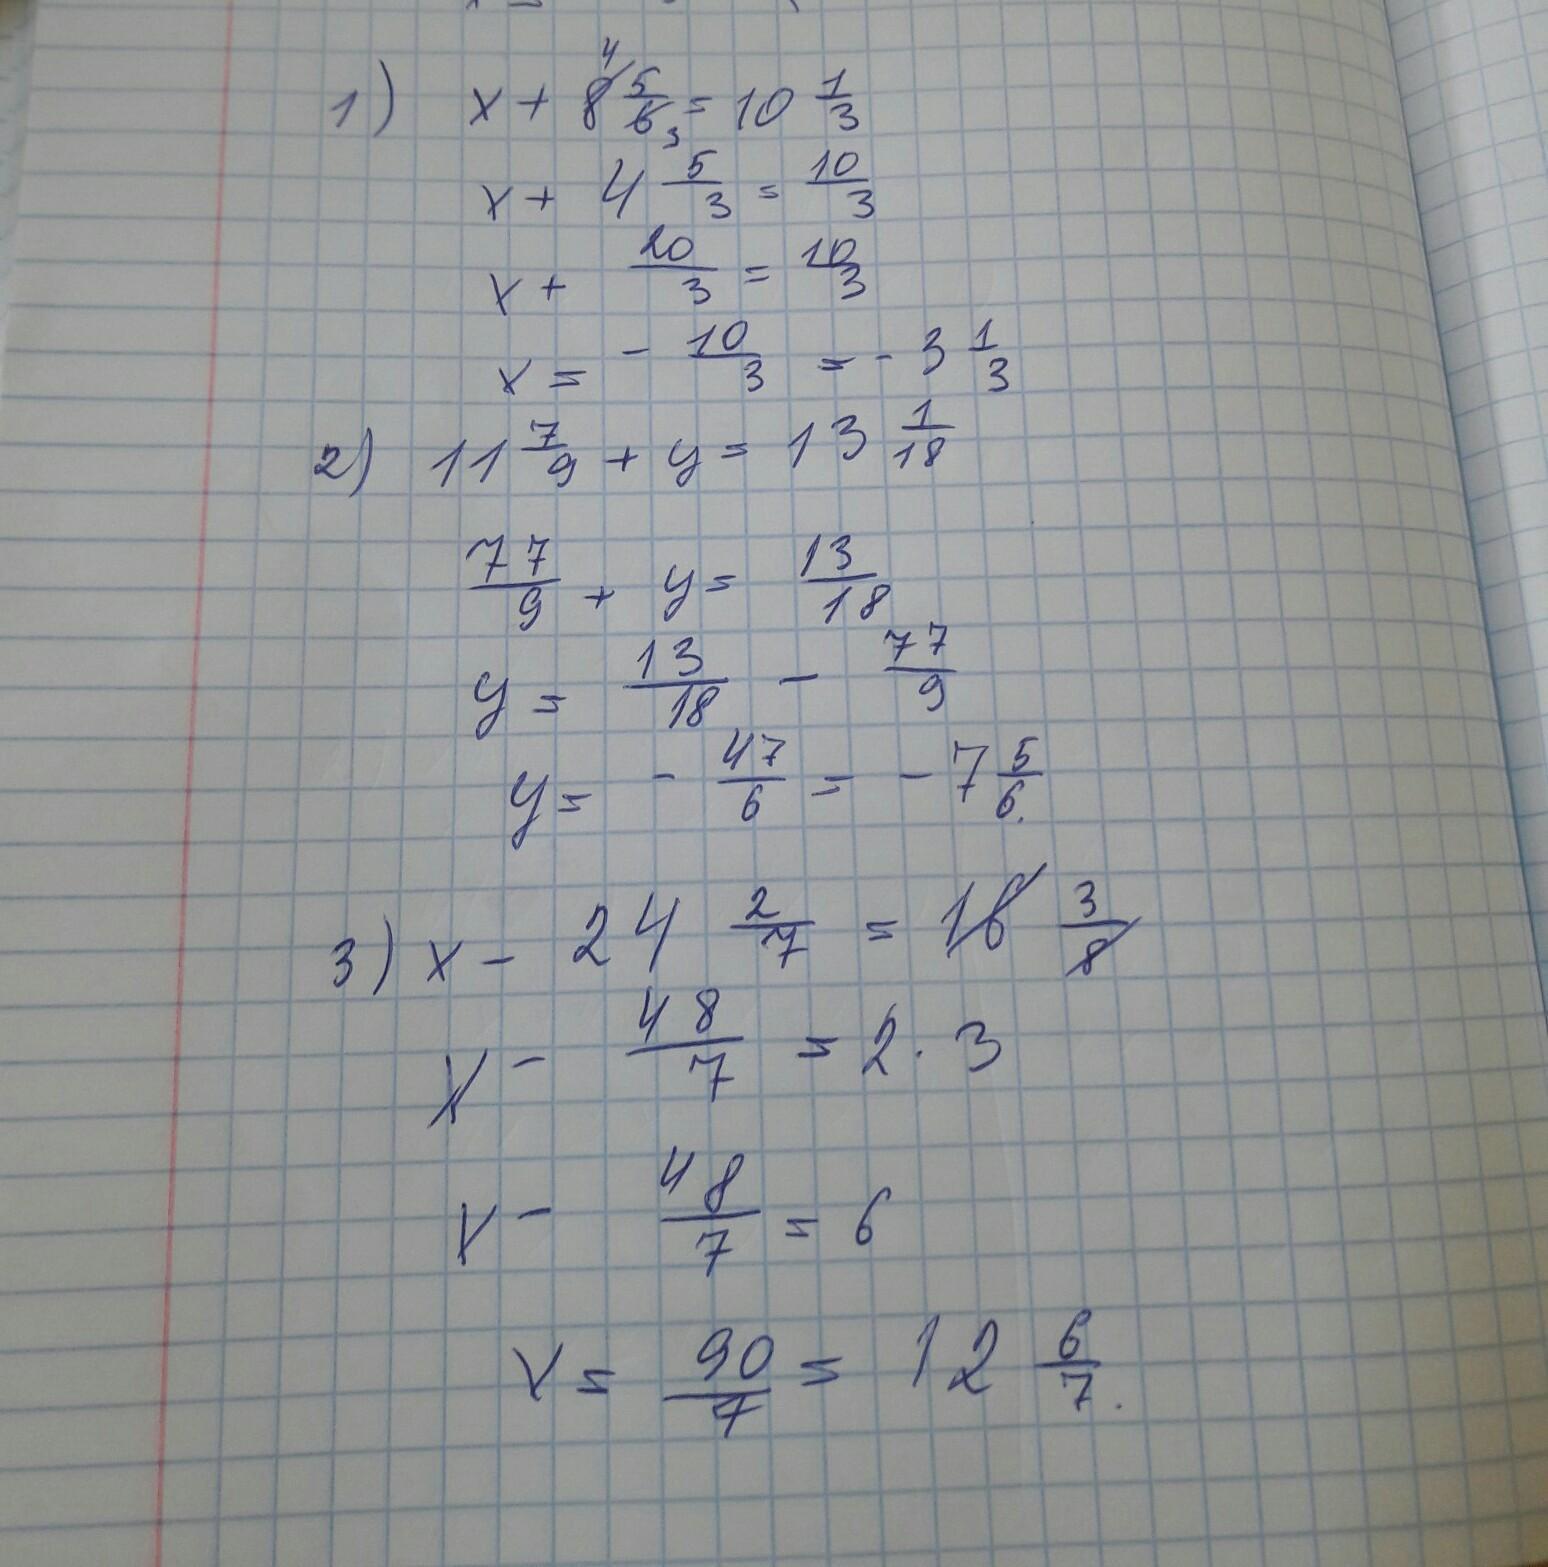 1) x + 8 4 5/6 3 = 10 1/3
x + 4 5/3 = 10/3
x + 20/3 = 10/3
x = - 10/3 = - 3 1/3
2) 11 7/9 + y = 13 1/18
77/9 + y = 13/18
y = 13/18 - 77/9
y = - 47/6 = - 7 5/6.
3) x - 24 2/7 = 16 3/8
x - 48/7 = 2 · 3
x - 48/7 = 6
x = 90/7 = 12 6/7.